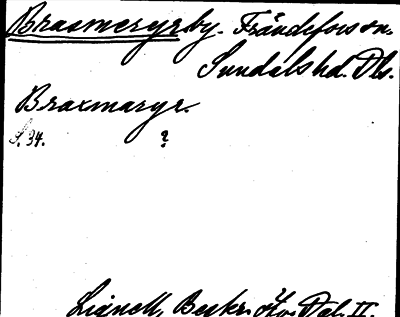 Brasmeryrby. Frändefors sn.
Sundals hd. Dls.
Braxmaryr.
S. 34. ?
Lignell, Beskr. öfv. Dal. II.